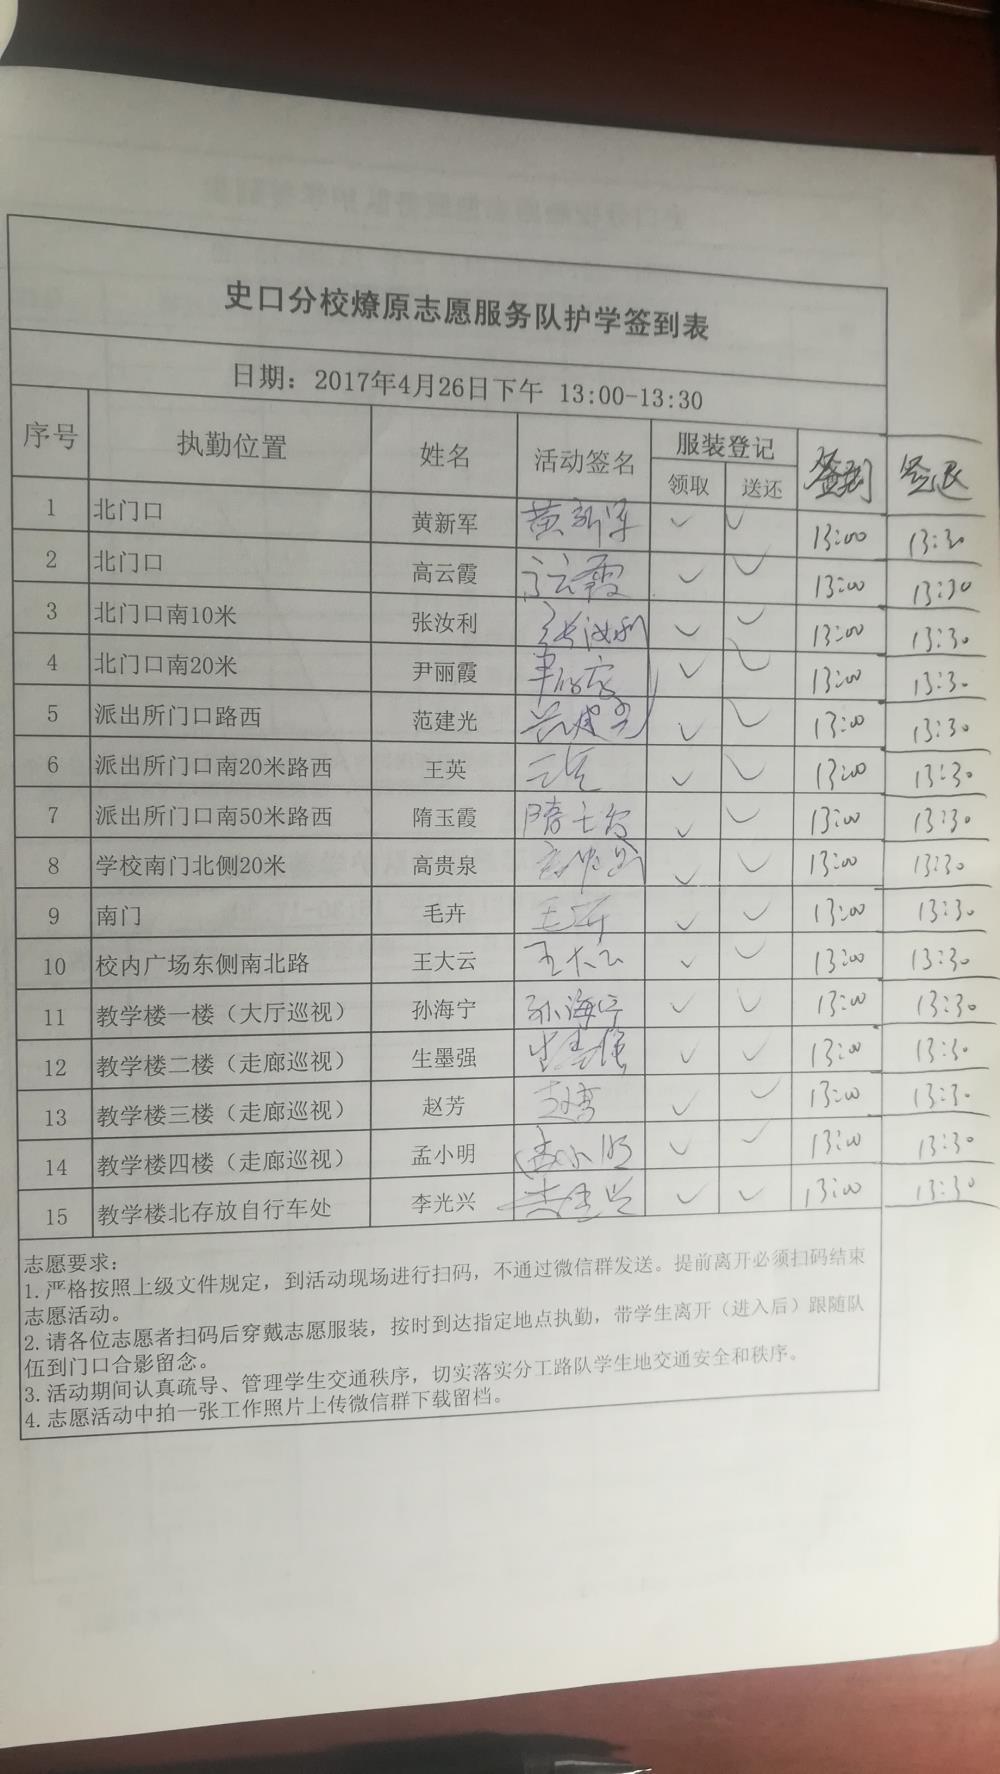 史口分校燎原志愿服务队护学签到表
日期：2017年4月26日下午 13:00-13:30
序号 执勤位置 姓名 活动签名 服装登记 签到 签退
领取 送还
1 北门口 黄新军 黄新军 ✓ ✓ 13:00 13:30
2 北门口 高云霞 高云霞 ✓ ✓ 13:00 13:30
3 北门口南10米 张汝利 张汝利 ✓ ✓ 13:00 13:30
4 北门口南20米 尹丽霞 ✓ ✓ 13:00 13:30
5 派出所门口路西 范建光 ✓ ✓ 13:00 13:30
6 派出所门口南20米路西 王英 王英 ✓ ✓ 13:00 13:30
7 派出所门口南50米路西 隋玉霞 隋玉霞 ✓ ✓ 13:00 13:30
8 学校南门北侧20米 高贵泉 ✓ ✓ 13:00 13:30
9 南门 毛卉 毛卉 ✓ ✓ 13:00 13:30
10 校内广场东侧南北路 王大云 王大云 ✓ ✓ 13:00 13:30
11 教学楼一楼（大厅巡视） 孙海宁 孙海宁 ✓ ✓ 13:00 13:30
12 教学楼二楼（走廊巡视） 生墨强 生墨强 ✓ ✓ 13:00 13:30
13 教学楼三楼（走廊巡视） 赵芳 赵芳 ✓ ✓ 13:00 13:30
14 教学楼四楼（走廊巡视） 孟小明 孟小明 ✓ ✓ 13:00 13:30
15 教学楼北存放自行车处 李光兴 李光兴 ✓ ✓ 13:00 13:30
志愿要求：
1.严格按照上级文件规定，到活动现场进行扫码，不通过微信群发送。提前离开必须扫码结束
志愿活动。
2.请各位志愿者扫码后穿戴志愿服装，按时到达指定地点执勤，带学生离开（进入后）跟随队
伍到门口合影留念。
3.活动期间认真疏导、管理学生交通秩序，切实落实分工路队学生地交通安全和秩序。
4.志愿活动中拍一张工作照片上传微信群下载留档。